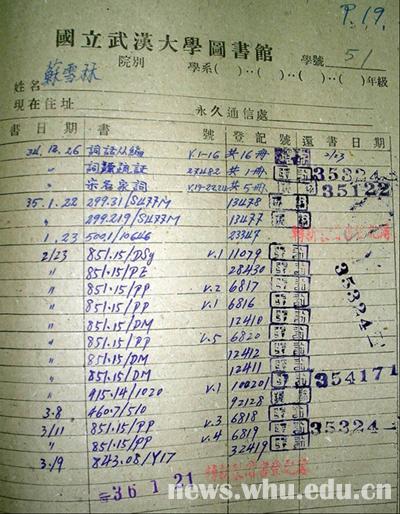 P.19.
國立武漢大學圖書館
院別 學系( )··( )··( )··( )年級 學號 51
姓名 蘇雪林
現在住址 永久通信處
書日期 書 號 登記號 還書日期
34.12.26 詞話丛編 v.1-16 共16冊 2/23
〃 共1冊 35324
〃 宋名家詞 共5冊 35122
35.1.22 299.31/S477M 13478
〃 299.219/S477M 13477
1.23 500.1/10646 23347
2/23 851.15/DSy v.1 11079
〃 851.15/PZ 28430
〃 851.15/PP v.2 6817
〃 851.15/PP v.1 6816
〃 851.15/DM 12418
〃 851.15/PP v.5 6820
〃 851.15/DM 12412
〃 851.15/DM 12411
〃 915.14/1020 v.1 10020 354171
3.8 460.7/510 92128
3/11 851.15/PP v.3 6818 35324
〃 851.15/PP v.4 6819
3/9 843.08/Y17 32419
36 1 21
35324
news.whu.edu.cn